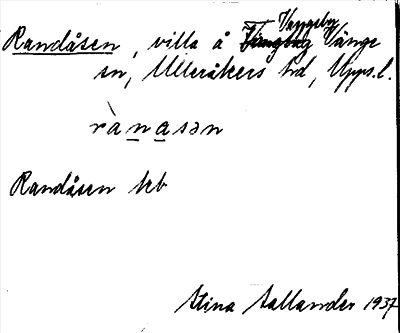 Randåsen, villa å Vängeby Vänge
sn, Ulleråkers hd, Upps. l.
rànasən
Randåsen hrb
Stina Sallander 1937